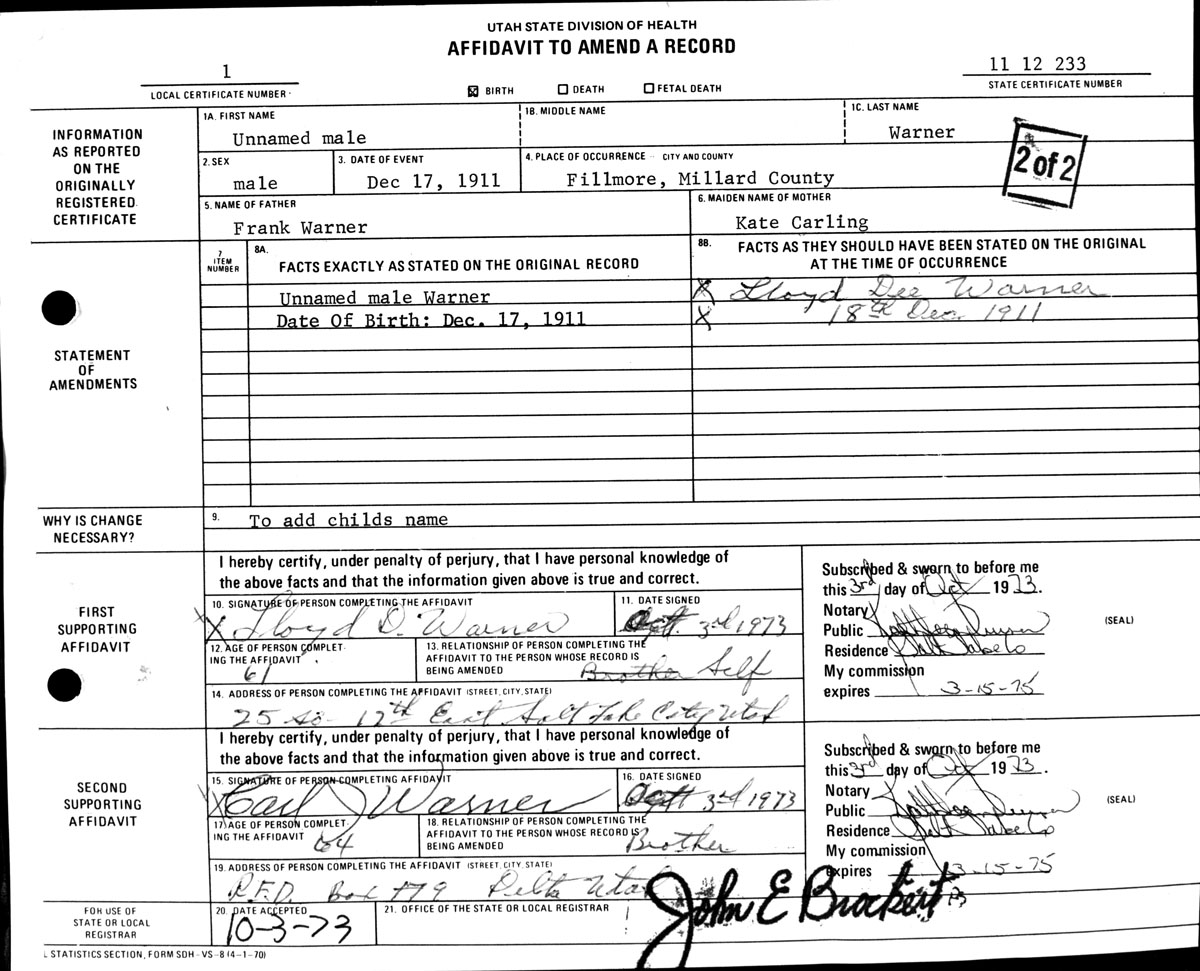 UTAH STATE DIVISION OF HEALTH
AFFIDAVIT TO AMEND A RECORD
1
LOCAL CERTIFICATE NUMBER
☒ BIRTH ☐ DEATH ☐ FETAL DEATH
11 12 233
STATE CERTIFICATE NUMBER
INFORMATION AS REPORTED ON THE ORIGINALLY REGISTERED CERTIFICATE
1A. FIRST NAME 1B. MIDDLE NAME 1C. LAST NAME
Unnamed male Warner
2 of 2
2. SEX 3. DATE OF EVENT 4. PLACE OF OCCURRENCE CITY AND COUNTY
male Dec 17, 1911 Fillmore, Millard County
5. NAME OF FATHER 6. MAIDEN NAME OF MOTHER
Frank Warner Kate Carling
STATEMENT OF AMENDMENTS
7 ITEM NUMBER
8A. FACTS EXACTLY AS STATED ON THE ORIGINAL RECORD
8B. FACTS AS THEY SHOULD HAVE BEEN STATED ON THE ORIGINAL
AT THE TIME OF OCCURRENCE
Unnamed male Warner X Lloyd Dee Warner
Date Of Birth: Dec. 17, 1911 X 18th Dec. 1911
WHY IS CHANGE NECESSARY?
9. To add childs name
FIRST SUPPORTING AFFIDAVIT
I hereby certify, under penalty of perjury, that I have personal knowledge of
the above facts and that the information given above is true and correct.
10. SIGNATURE OF PERSON COMPLETING THE AFFIDAVIT 11. DATE SIGNED
X Lloyd D. Warner Oct. 3rd 1973
12. AGE OF PERSON COMPLETING THE AFFIDAVIT
61
13. RELATIONSHIP OF PERSON COMPLETING THE
AFFIDAVIT TO THE PERSON WHOSE RECORD IS
BEING AMENDED Brother Self
14. ADDRESS OF PERSON COMPLETING THE AFFIDAVIT (STREET, CITY, STATE)
25 So - 12th East Salt Lake City Utah
Subscribed & sworn to before me
this 3rd day of Oct 1973.
Notary
Public
Residence
My commission
expires 3-15-75
(SEAL)
SECOND SUPPORTING AFFIDAVIT
I hereby certify, under penalty of perjury, that I have personal knowledge of
the above facts and that the information given above is true and correct.
15. SIGNATURE OF PERSON COMPLETING AFFIDAVIT 16. DATE SIGNED
X Carl J Warner Oct 3rd 1973
17. AGE OF PERSON COMPLETING THE AFFIDAVIT
64
18. RELATIONSHIP OF PERSON COMPLETING THE
AFFIDAVIT TO THE PERSON WHOSE RECORD IS
BEING AMENDED Brother
19. ADDRESS OF PERSON COMPLETING THE AFFIDAVIT (STREET, CITY, STATE)
R.F.D. Box 79 Delta Utah
Subscribed & sworn to before me
this 3rd day of Oct 1973.
Notary
Public
Residence
My commission
expires 3-15-75
(SEAL)
FOR USE OF STATE OR LOCAL REGISTRAR
20. DATE ACCEPTED 21. OFFICE OF THE STATE OR LOCAL REGISTRAR
10-3-73 John E Brockert
L STATISTICS SECTION, FORM SDH - VS - 8 (4-1-70)